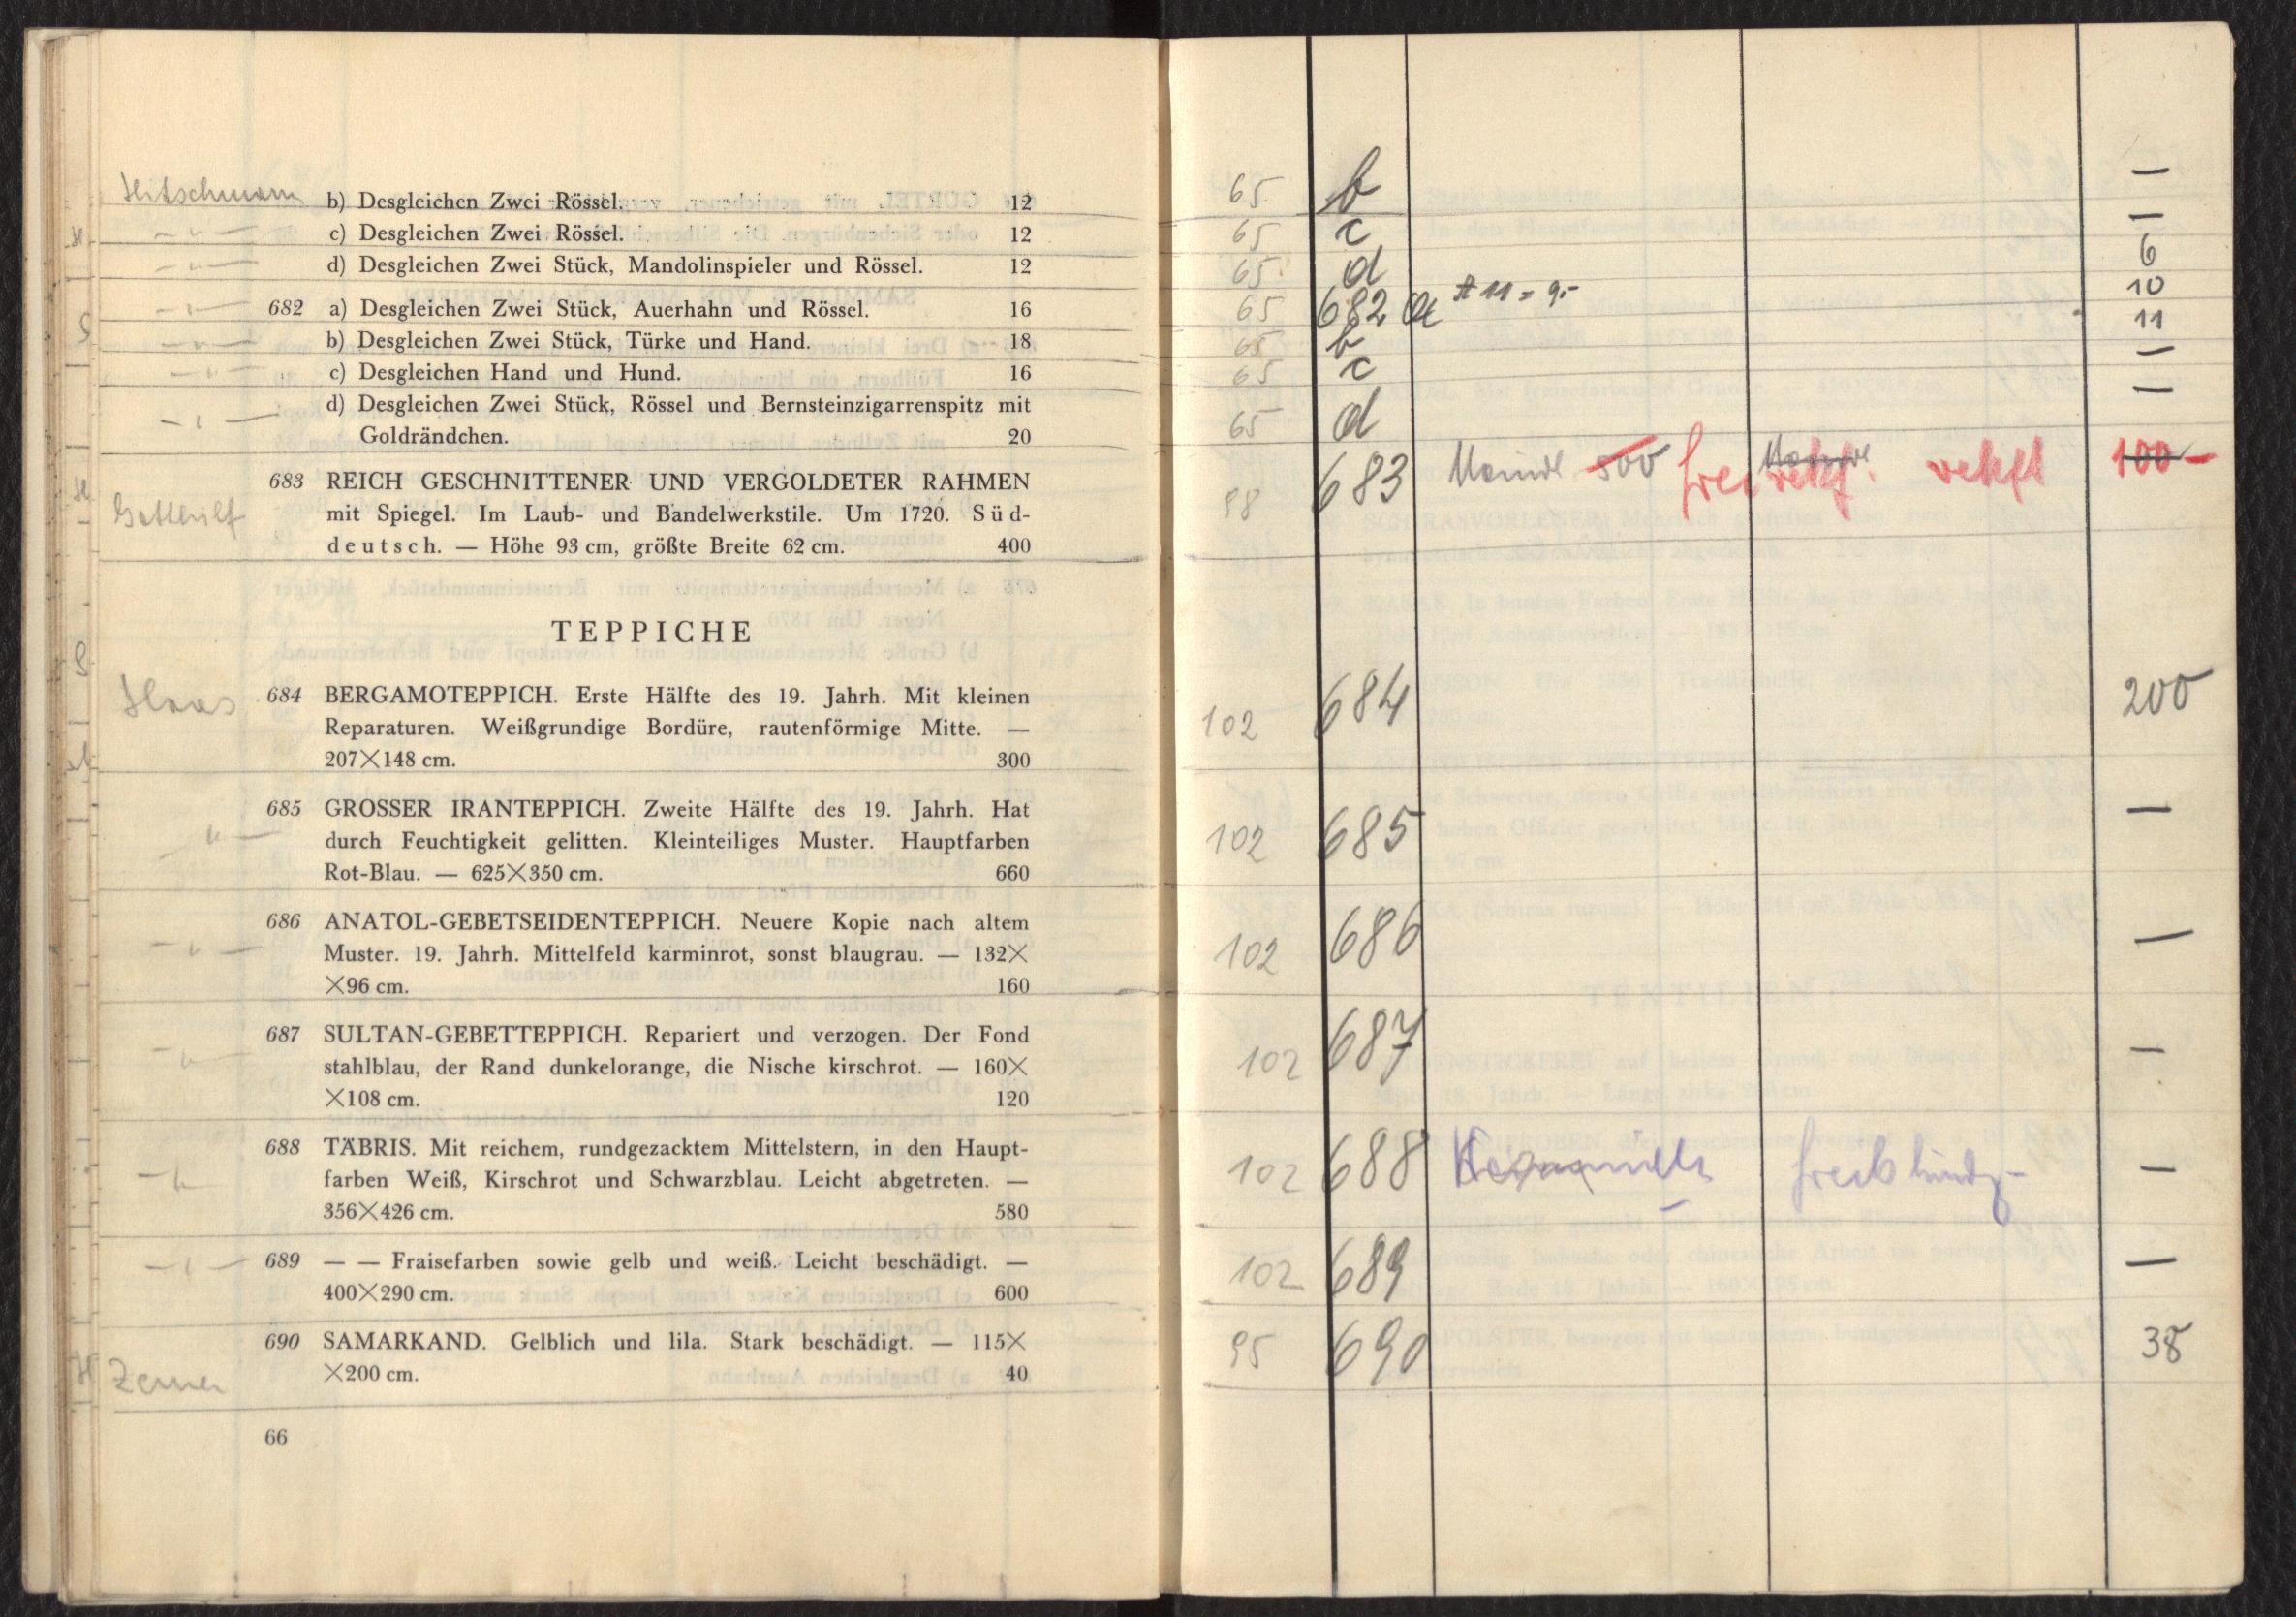 Hitschmann b) Desgleichen Zwei Rössel. 12
c) Desgleichen Zwei Rössel. 12
d) Desgleichen Zwei Stück, Mandolinspieler und Rössel. 12
682 a) Desgleichen Zwei Stück, Auerhahn und Rössel. 16
b) Desgleichen Zwei Stück, Türke und Hand. 18
c) Desgleichen Hand und Hund. 16
d) Desgleichen Zwei Stück, Rössel und Bernsteinzigarrenspitz mit
Goldrändchen. 20
683 REICH GESCHNITTENER UND VERGOLDETER RAHMEN
Gotthilf mit Spiegel. Im Laub- und Bandelwerkstile. Um 1720. Süd-
deutsch. — Höhe 93 cm, größte Breite 62 cm. 400
TEPPICHE
Haas 684 BERGAMOTEPPICH. Erste Hälfte des 19. Jahrh. Mit kleinen
Reparaturen. Weißgrundige Bordüre, rautenförmige Mitte. —
207×148 cm. 300
685 GROSSER IRANTEPPICH. Zweite Hälfte des 19. Jahrh. Hat
durch Feuchtigkeit gelitten. Kleinteiliges Muster. Hauptfarben
Rot-Blau. — 625×350 cm. 660
686 ANATOL-GEBETSEIDENTEPPICH. Neuere Kopie nach altem
Muster. 19. Jahrh. Mittelfeld karminrot, sonst blaugrau. — 132×
×96 cm. 160
687 SULTAN-GEBETTEPPICH. Repariert und verzogen. Der Fond
stahlblau, der Rand dunkelorange, die Nische kirschrot. — 160×
×108 cm. 120
688 TÄBRIS. Mit reichem, rundgezacktem Mittelstern, in den Haupt-
farben Weiß, Kirschrot und Schwarzblau. Leicht abgetreten. —
356×426 cm. 580
689 — — Fraisefarben sowie gelb und weiß. Leicht beschädigt. —
400×290 cm. 600
690 SAMARKAND. Gelblich und lila. Stark beschädigt. — 115×
Zerner ×200 cm. 40
66
65 b —
65 c —
65 d 6
65 682 a # 11 = 9.- 10
65 b 11
65 c —
65 d —
98 683 500 100 —
102 684 200
102 685 —
102 686 —
102 687 —
102 688 —
102 689 —
95 690 38